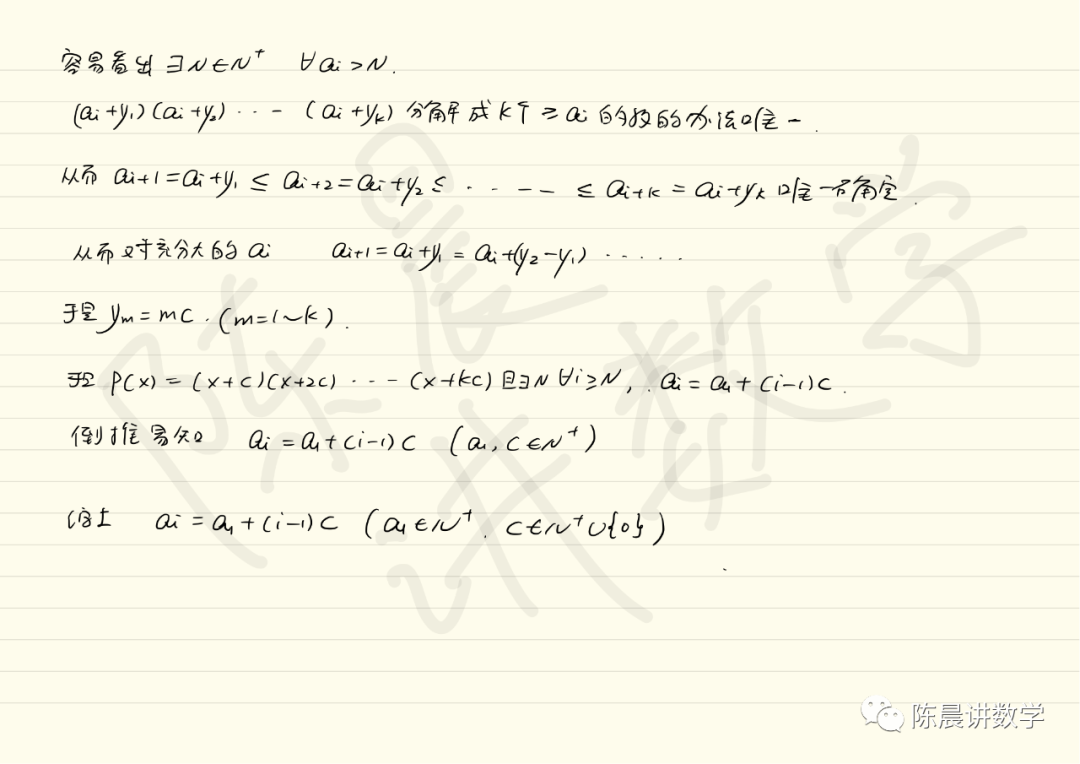 容易看出 ∃N∈N⁺ ∀ai>N.
(ai+y₁)(ai+y₂)···-(ai+yₖ)分解成k个≥ai的数的办法唯一.
从而 ai+1=ai+y₁≤ai+2=ai+y₂≤·····≤ai+k=ai+yₖ唯一确定.
从而对充分大的ai ai+1=ai+y₁=ai+(y₂-y₁)······
于是 yₘ=mc.(m=1~k).
于是 P(x)=(x+c)(x+2c)···-(x+kc)且∃N ∀i≥N, ai=a₁+(i-1)c.
倒推易知 ai=a₁+(i-1)c (a₁,c∈N⁺)
综上 ai=a₁+(i-1)c (a₁∈N⁺, c∈N⁺∪{0})
陈晨讲数学
陈晨讲数学